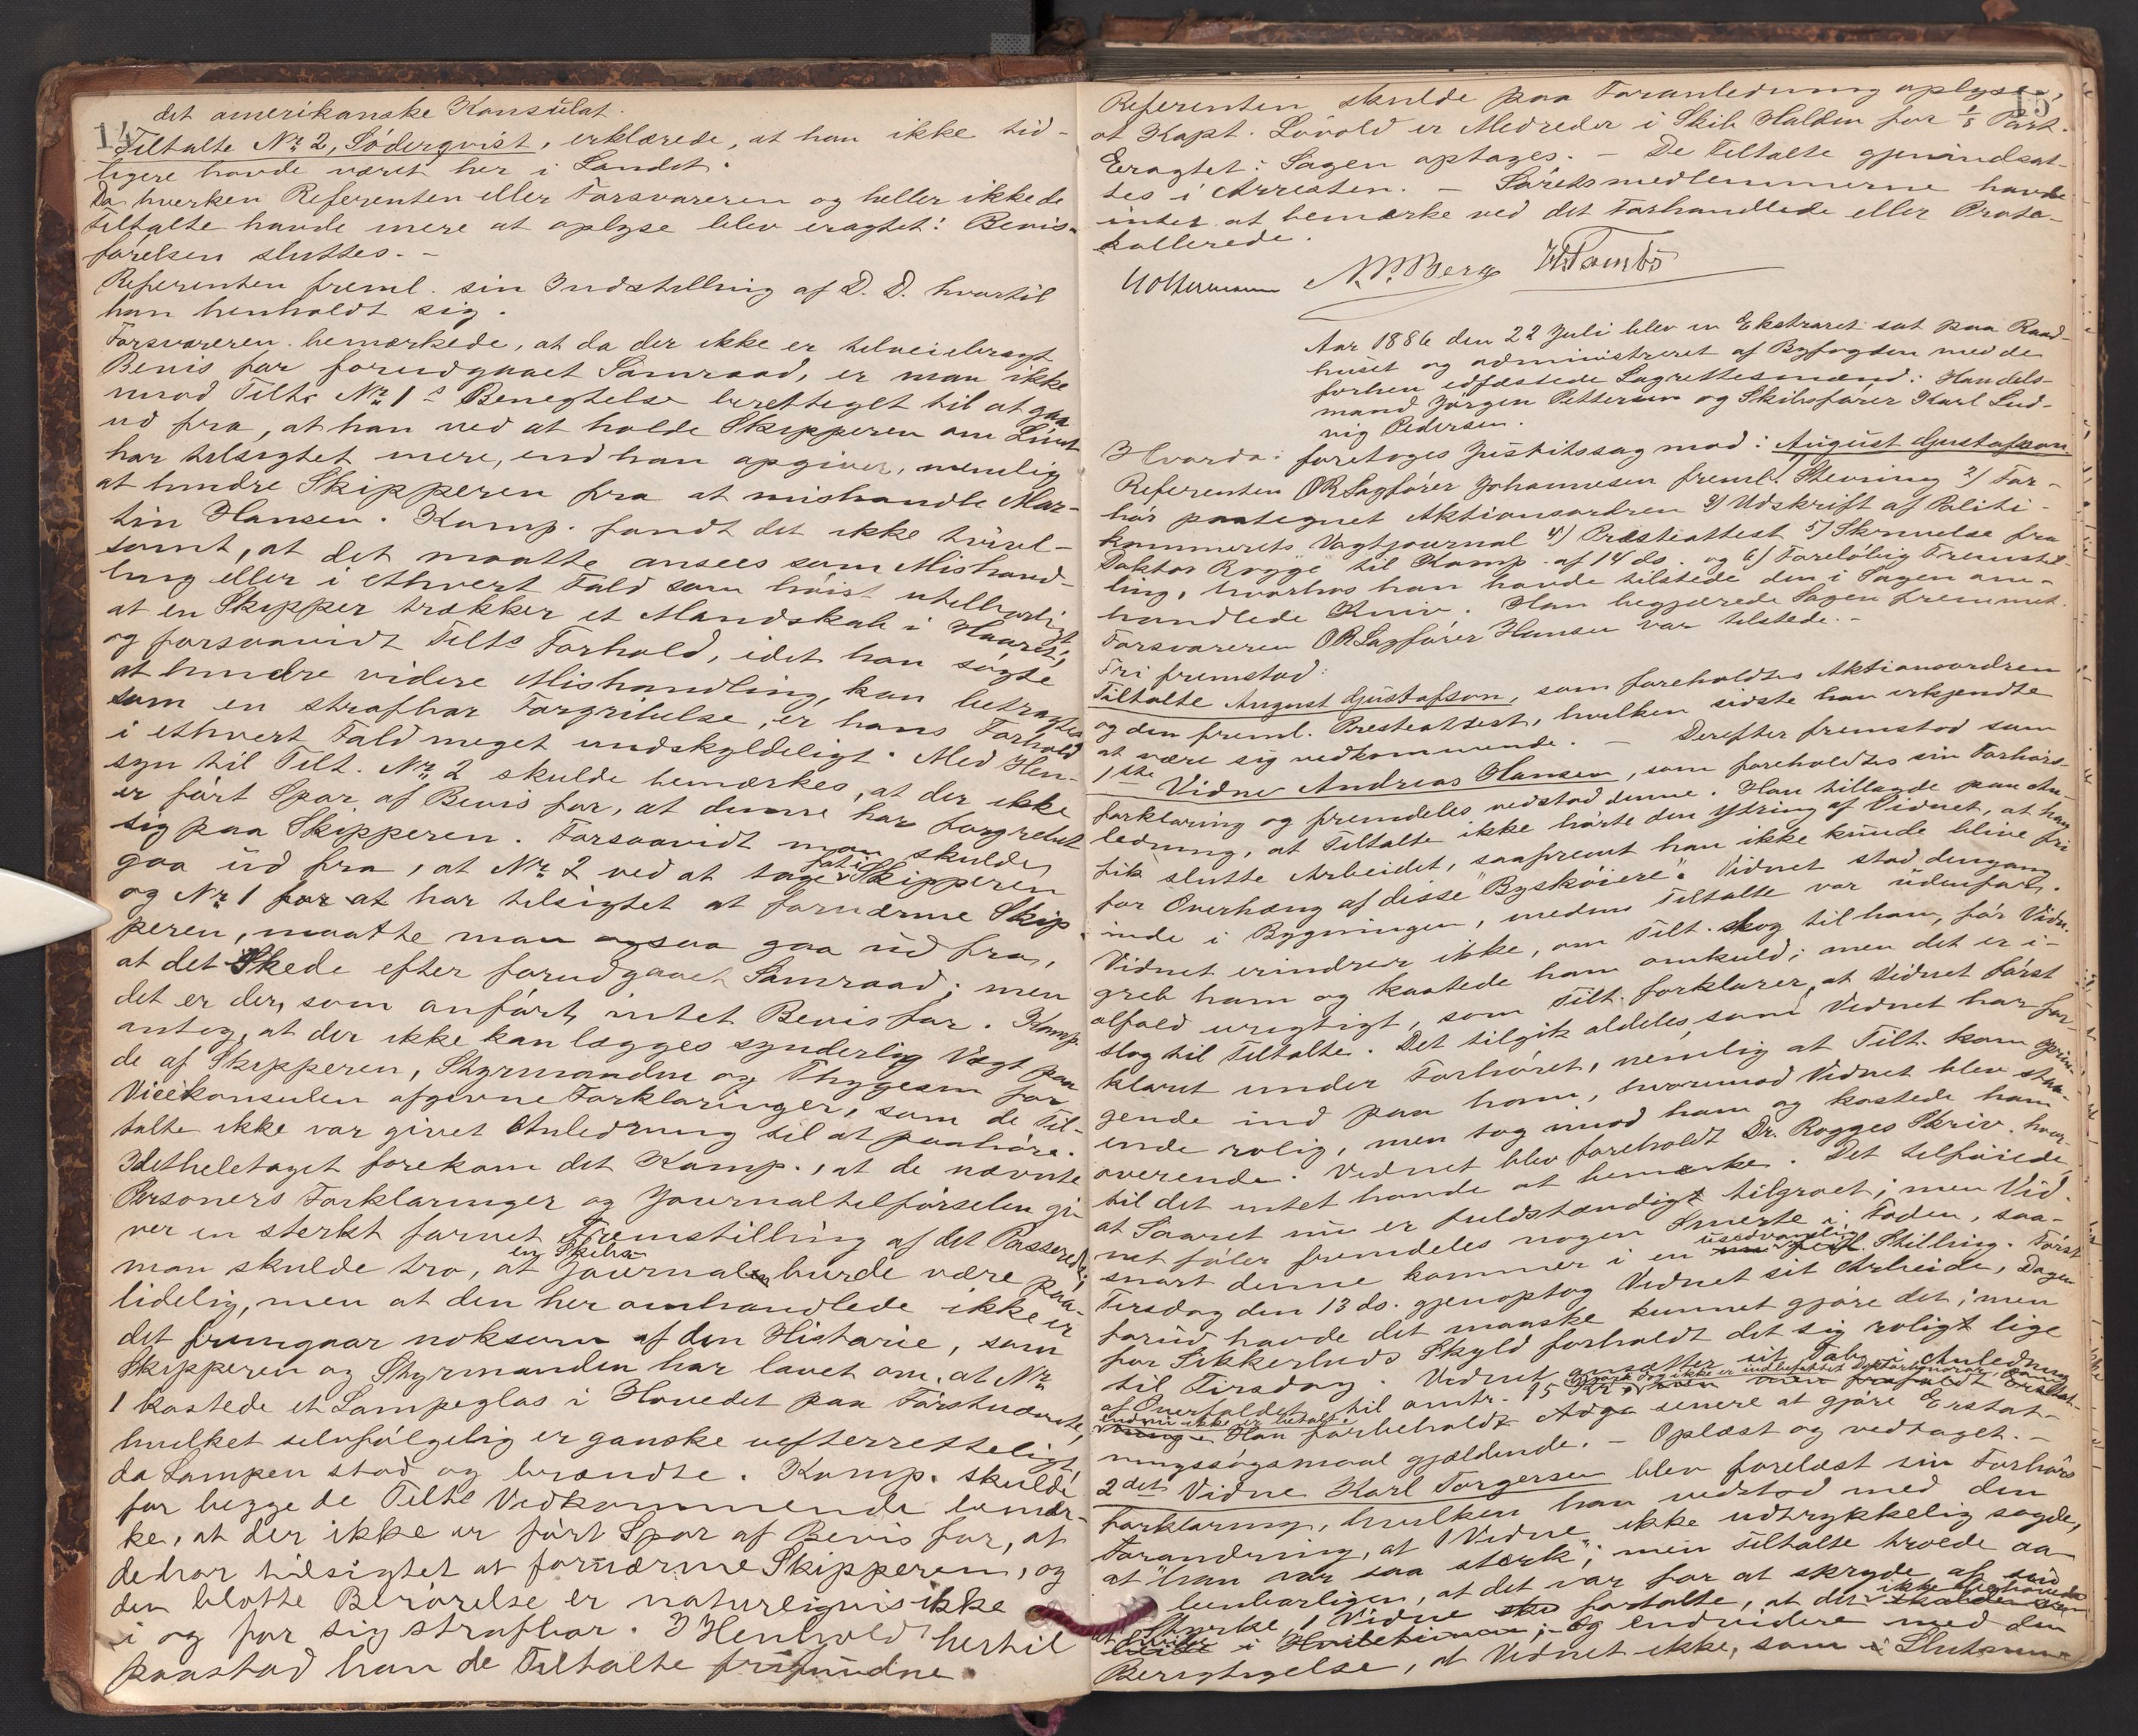 14
det amerikanske Konsulat.
Tiltalte No 2, Söderqvist, erklærede, at han ikke tid-
ligere havde været her i Landet.
Da hverken Referenten eller Forsvareren og heller ikke de
Tiltalte havde mere at oplyse blev eragtet: Bevis-
førelsen sluttes. -
Referenten freml. sin Indstilling af D. D. hvortil
han henholdt sig.
Forsvareren bemærkede, at da der ikke er tilveiebragt
Bevis for forudgaaet Samraad, er man ikke
mod Tilte No 1s Benegtelse berettiget til at gaa
ud fra, at han ved at holde Skipperen om Livet
har tilsigtet mere, end han opgiver, nemlig
at hindre Skipperen fra at mishandle Mar-
tin Hansen. Komp. fandt det ikke tvivl-
somt, at det maatte ansees som Mishand-
ling eller i ethvert Fald som høist utilbørligt,
at en Skipper trækker et Mandskab i Haaret,
og forsaavidt Tilts Forhold, idet han søgte
at hindre videre Mishandling, kan betragtes
som en strafbar Forgribelse, er hans Forhold
i ethvert Fald meget undskyldeligt. Med Hen-
syn til Tilt. No 2 skulde bemærkes, at der ikke
er ført Spor af Bevis for, at denne har forgrebet
sig paa Skipperen. Forsaavidt man skulde
gaa ud fra, at No 2 ved at tage fat i Skipperen
og No 1 for at har tilsigtet at fornærme Skip-
peren, maatte man ogsaa gaa ud fra,
at det skede efter forudgaaet Samraad; men
det er der, som anført, intet Bevis for. Komp.
antog, at der ikke kan lægges synderlig Vægt paa
de af Skipperen, Styrmanden og Thygesen for
Vicekonsulen afgivne Forklaringer, som de Til-
talte ikke var givet Anledning til at paahøre.
Idetheletaget forekom det Komp., at de nævnte
Personers Forklaringer og Journaltilførselen gi-
ver en sterkt farvet Fremstilling af det Passerede;
man skulde tro, at en Skibs-Journal burde være paa-
lidelig, men at den her omhandlede ikke er
det fremgaar noksom af den Historie, som
Skipperen og Styrmanden har lavet om, at No
1 kastede et Lampeglas i Hovedet paa Førstnævnte,
hvilket selvfølgelig er ganske uefterretteligt,
da Lampen stod og brændte. Komp. skulde
for begge de Tilts Vedkommende bemær-
ke, at der ikke er ført Spor af Bevis for, at
de har tilsigtet at fornærme Skipperen, og
den blotte Berørelse er naturligvis ikke
i og for sig strafbar. I Henhold hertil
paastod han de Tiltalte frifundne.
15
Referenten skulde paa Foranledning oplyse,
at Kapt. Lövold er Medreder i Skib Halden for 1/5 Part.
Eragtet: Sagen optages. - De Tiltalte gjenindsat-
tes i Arresten. - Søretsmedlemmerne havde
intet at bemærke ved det Forhandlede eller Proto-
kollerede.
N. P. Berg
Aar 1886 den 22 Juli blev en Ekstraret sat paa Raad-
huset og administreret af Byfogden med de
forhen edfæstede Lagrettesmænd: Handels-
mand Jørgen Pettersen og Skibsfører Karl Lud-
vig Pedersen.
Hvorda: foretoges Justitssag mod: August Gustafsson
Referenten ORSagfører Johannesen freml. 1) Stevning 2) For-
hør paategnet Aktionsordren 3) Udskrift af Politi-
kammerets Vagtjournal 4) Præsteattest 5) Skrivelse fra
Doktor Rogge til Komp. af 14 ds. og 6) Foreløbig Fremstil-
ling, hvorhos han havde tilstede den i Sagen om-
handlede Kniv. Han begjærede Sagen fremmet.
Forsvareren ORSagfører Hansen var tilstede. -
Fri fremstod:
Tiltalte August Gustafson, som foreholdtes Aktionsordren
og den freml. Presteattest, hvilken sidste han erkjendte
at være sig vedkommende. - Derefter fremstod som
1ste Vidne Andreas Hansen, som foreholdtes sin Forhørs-
forklaring og fremdeles vedstod denne. Han tillagde paa An-
ledning, at Tiltalte ikke hørte den Ytring af Vidnet, at han
fik slutte Arbeidet, saafremt han ikke kunde blive fri
for Overhæng af disse "Byskøiere". Vidnet stod dengang
inde i Bygningen, medens Tiltalte var udenfor.
Vidnet erindrer ikke, om Tilt. slog til ham, før Vidn.
greb ham og kastede ham omkuld; men det er i-
alfald urigtigt, som Tilt. forklarer, at Vidnet først
slog til Tiltalte. Det tilgik aldeles, som Vidnet har for-
klaret under Forhøret, nemlig at Tilt. kom sprin-
gende ind paa ham, hvorimod Vidnet blev staa-
ende rolig, men tog imod ham og kastede ham
overende. Vidnet blev foreholdt Dr. Rogges Skriv. hvor-
til det intet havde at bemærke. Det tilføiede,
at Saaret nu er fuldstændigt tilgroet; men Vid-
net føler fremdeles nogen Smerte i Foden, saa-
snart denne kommer i en usedvanlig Stilling. Først
Tirsdag den 13 ds. gjenoptog Vidnet sit Arbeide, Dagen
forud havde det maaske kunnet gjøre det; men
for Sikkerheds Skyld forholdt det sig roligt lige
til Tirsdag. Vidnet ansætter sit Tab i Anledning
af Overfaldet til omtr. 15 Kr. hvori dog ikke er indbefattet Doktorhonorar, som
endnu ikke er betalt. Han forbeholdt Adga senere at gjøre Erstat-
ningssøgsmaal gjældende. - Oplæst og vedtaget. -
2det Vidne Karl Torgersen blev forelæst sin Forhørs-
forklaring, hvilken han vedstod med den
Forandring, at 1 Vidne ikke udtrykkelig sagde,
at "han var saa sterk"; men Tiltalte troede aa-
benbarligen, at det var for at skryde af sin
Styrke, 1 Vidne fortalte, at det ikke behøvede
at hvile i Hviletimen; - og endvidere med den
Berigtigelse, at Vidnet ikke, som i Slutnin-